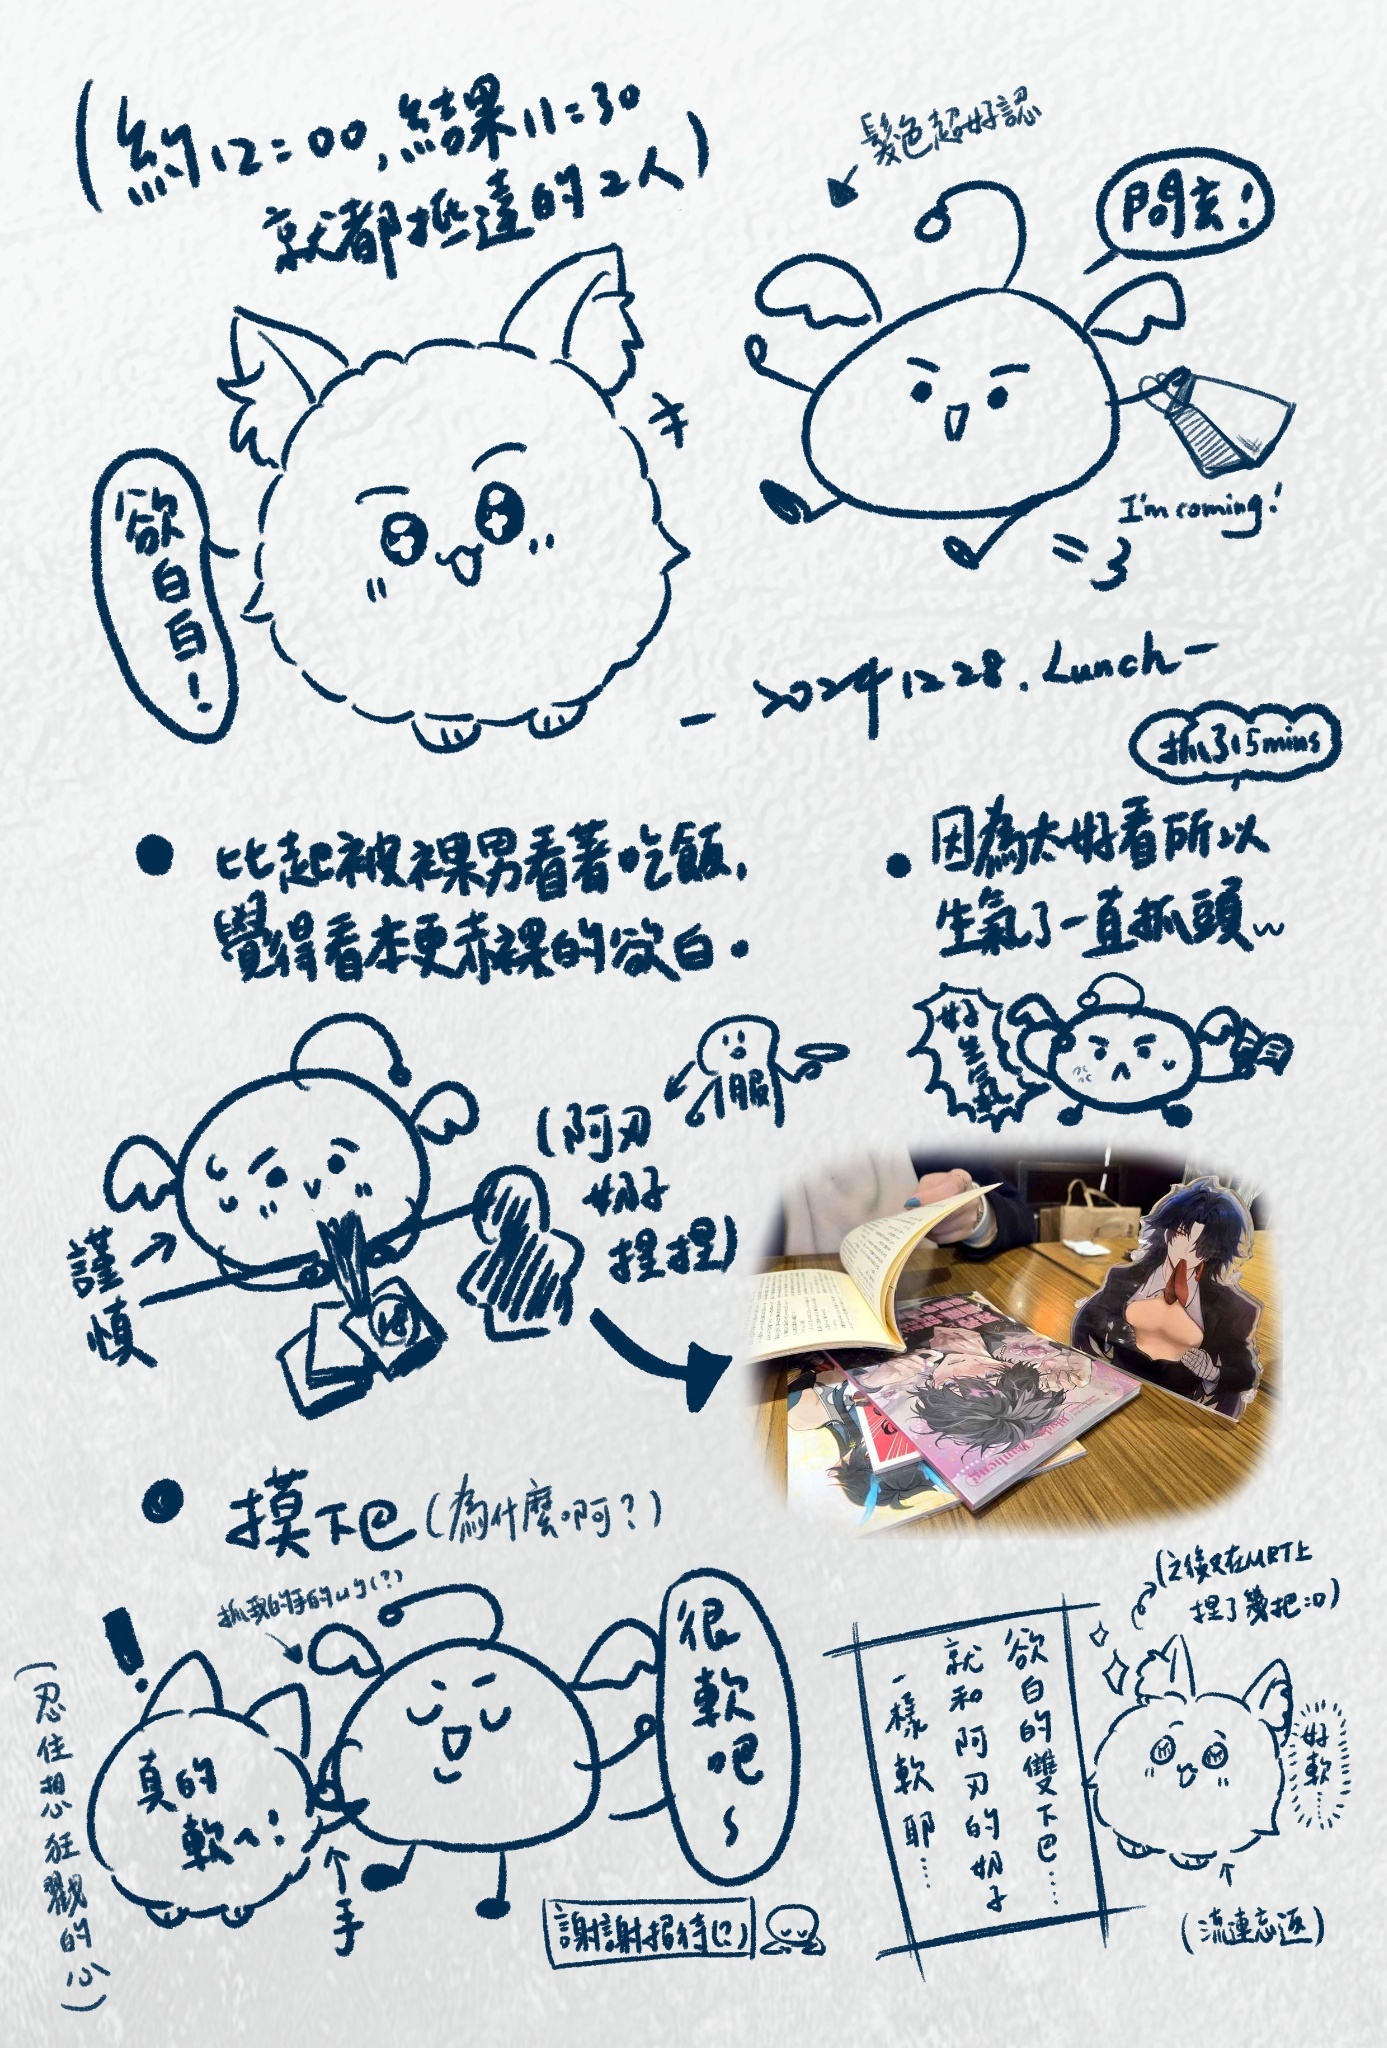 (約12:00,結果11:30
就都抵達的2人)
髮色超好認
問玄!
欲白白!
I'm coming!
-20241228.Lunch-
抓了15mins
●比起被裸男看著吃飯,
覺得看本更赤裸的欲白。
●因為太好看所以
生氣了一直抓頭~
好生氣
服
(阿刃
奶子
捏捏)
謹慎
18
●摸下巴(為什麼啊?)
抓我的手的
(?)
!
真的
軟~!
很軟吧~
(忍住想狂戳的心)
手
謝謝招待(?)
(之後又在MRT上
捏了幾把:D)
欲白的雙下巴……
就和阿刃的奶子
一樣軟耶……
好軟……
(流連忘返)